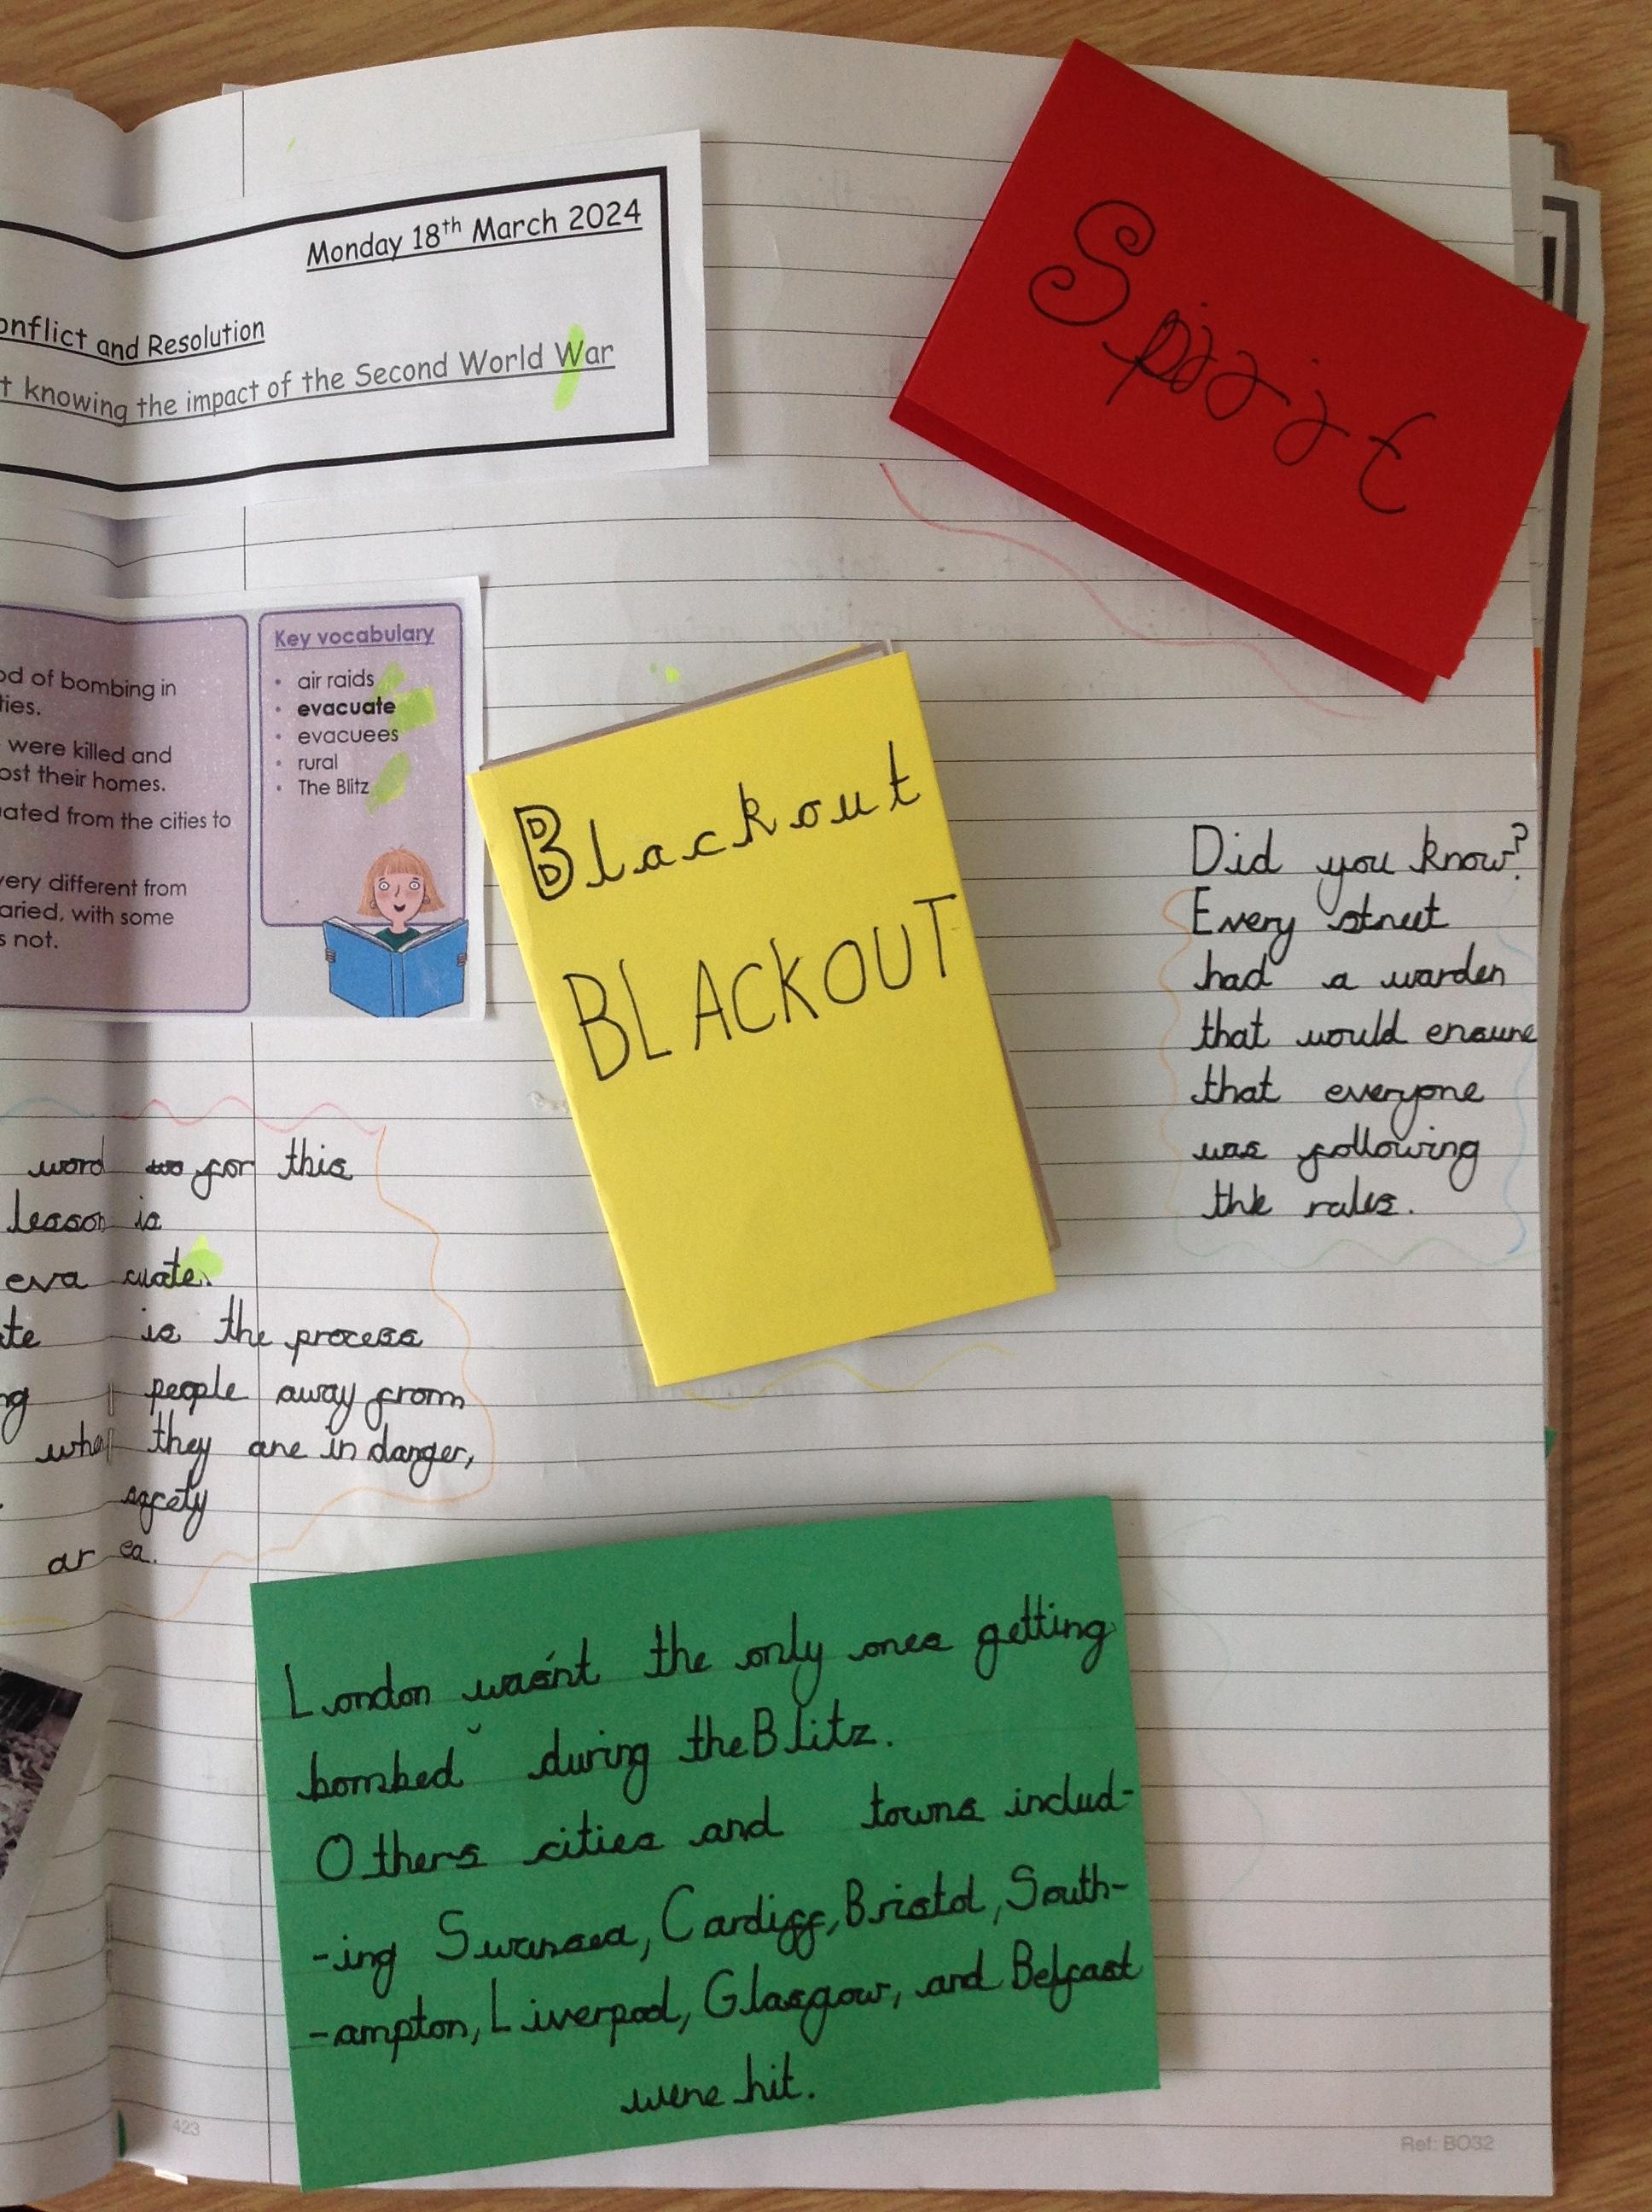 Monday 18th March 2024
onflict and Resolution
t knowing the impact of the Second World War
Spirit
od of bombing in
ties.
were killed and
ost their homes.
uated from the cities to
very different from
aried, with some
s not.
Key vocabulary
• air raids
• evacuate
• evacuees
• rural
• The Blitz
Blackout
BLACKOUT
Did you know?
Every street
had a warden
that would ensure
that everyone
was following
the rules.
word for this
lesson is
evacuate.
te is the process
ng people away from
they are in danger,
safety
area.
London wasn't the only ones getting
bombed during the Blitz.
Others cities and towns includ-
-ing Swansea, Cardiff, Bristol, South-
-ampton, Liverpool, Glasgow, and Belfast
were hit.
423
Ref: BO32